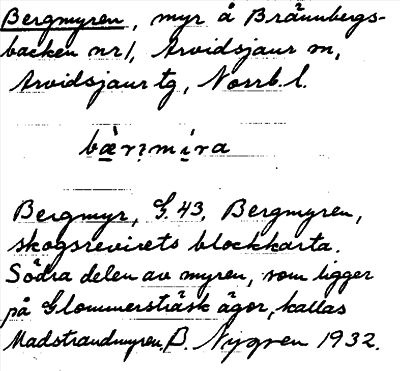 Bergmyren, myr å Brännbergs-
backen nr 1, Arvidsjaur sn,
Arvidsjaur tg, Norrb. l.
bæ̀rımíra
Bergmyr, G. 43, Bergmyren,
skogsrevirets blockkarta.
Södra delen av myren, som ligger
på Glommersträsk ägor, kallas
Madstrandmyren. B. Nygren 1932.